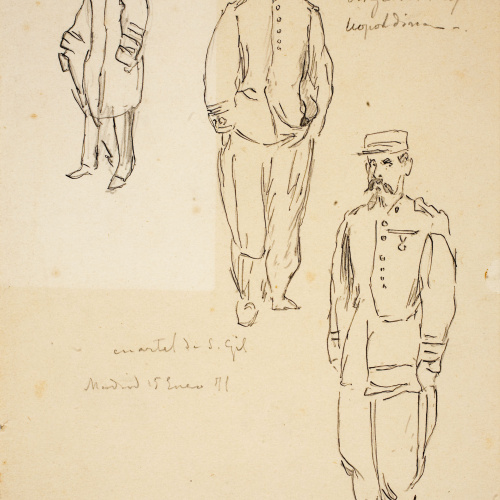 leopoldina
cuartel de S. Gil
Madrid 15 Enero 71